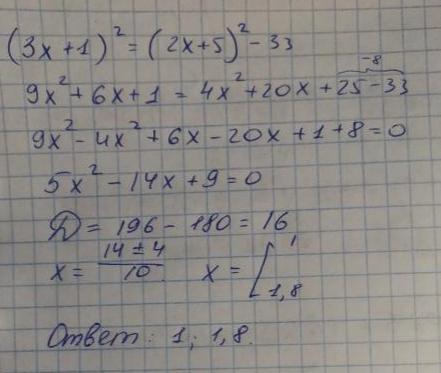 (3x+1)² = (2x+5)² - 33
-8
9x² + 6x + 1 = 4x² + 20x + 25 - 33
9x² - 4x² + 6x - 20x + 1 + 8 = 0
5x² - 14x + 9 = 0
D = 196 - 180 = 16
x = (14 ± 4)/10 x = [ 1
1,8
Ответ: 1; 1,8.